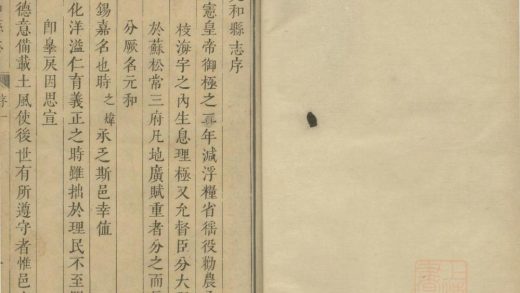 元和縣志序
憲皇帝御極之二年減浮糧省徭役勸農桑
核海宇之內生息理極又允督臣分大縣
於蘇松常三府凡地廣賦重者分之而
分厥名元和
錫嘉名也時之煒承乏斯邑幸值
化洋溢仁育義正之時雖拙於理民不至
即皋戾因思宣
德意備載土風使後世有所遵守者惟邑
序一